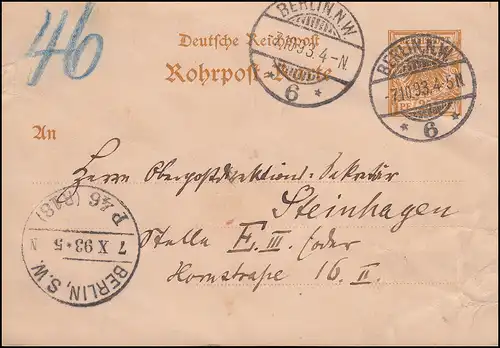 46
Deutsche Reichspost
Rohrpost-Karte
BERLIN, N.W.
7.10.93. 4-N.
* 6 *
BERLIN, N.W.
7.10.93. 4-5N.
* 6 *
PF 25
An
Herrn Oberpostdirektions-Sekretär
Steinhagen
Stelle E. III. (oder
Hornstraße 16. II.
P. 46 (R18)
7 X 93 * 5 N
BERLIN, S.W.